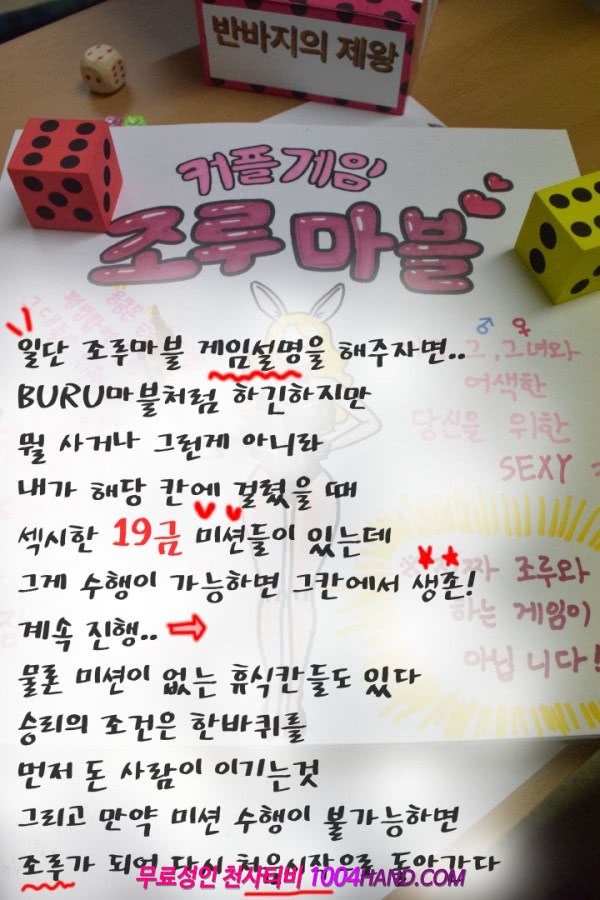 반바지의 제왕
커플게임
조루마블
일단 조루마블 게임설명을 해주자면..
BURU마블처럼 하긴하지만
뭘 사거나 그런게 아니라
내가 해당 칸에 걸렸을 때
섹시한 19금 미션들이 있는데
그게 수행이 가능하면 그칸에서 생존!
계속 진행..
물론 미션이 없는 휴식칸들도 있다
승리의 조건은 한바퀴를
먼저 돈 사람이 이기는것
그리고 만약 미션 수행이 불가능하면
조루가 되어 다시 처음시작으로 돌아간다
그,그녀와
어색한
당신을 위한
SEXY
조루와
하는 게임이
아닙니다!
무료성인 천사티비 1004HAND.COM